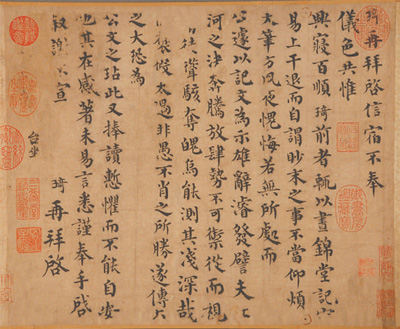 琦再拜啓信宿不奉
儀色共惟
興寢百順琦前者輒以晝錦堂記
易上干退而自謂眇末之事不當仰煩
大筆方夙夜愧悔若無所處而
公遽以記文為示雄辭濬發譬夫
河之決奔騰放肆勢不可禦從而視
徒聳駭奪魄烏能測其淺深哉
褒假太過非愚不肖之所勝遂傳
之大恐為
公文之玷此又捧讀慙懼而不能自安
也其在感著未易言悉謹奉手啓
叙謝不宣
琦再拜啓
台坐